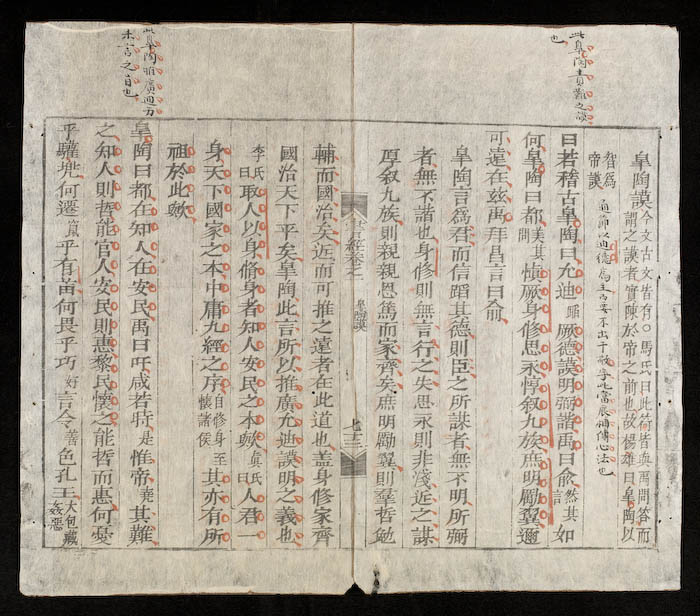 此皐陶責難之謨
也
皐陶謨今文古文皆有○馬氏曰此篇皆與禹問答而
謂之謨者實陳於帝之前也故楊雄曰皐陶以
智為
帝謨
曰若稽古皐陶曰允迪蹈厥德謨明弼諧禹曰俞然其言如
何皐陶曰都美其問慎厥身修思永惇叙九族庶明勵翼邇
可遠在玆禹拜昌言曰俞
皐陶言為君而信蹈其德則臣之所謀者無不明所弼
者無不諧也身修則無言行之失思永則非淺近之謀
厚叙九族則親親恩篤而家齊矣庶明勵翼則羣哲勉
書經卷之一 皐陶謨 七十三
輔而國治矣近而可推之遠者在此道也盖身修家齊
國治天下平矣皐陶此言所以推廣允迪謨明之義也
李氏曰取人以身修身者知人安民之本歟真氏曰人君一
身天下國家之本中庸九經之序自修身至懷諸侯其亦有所
祖於此歟
此皐陶推廣迪功
未言之旨也
皐陶曰都在知人在安民禹曰吁咸若時是惟帝堯其難
之知人則哲能官人安民則惠黎民懷之能哲而惠何憂
乎驩兠何遷竄乎有苗何畏乎巧好言令善色孔壬大包藏姦惡